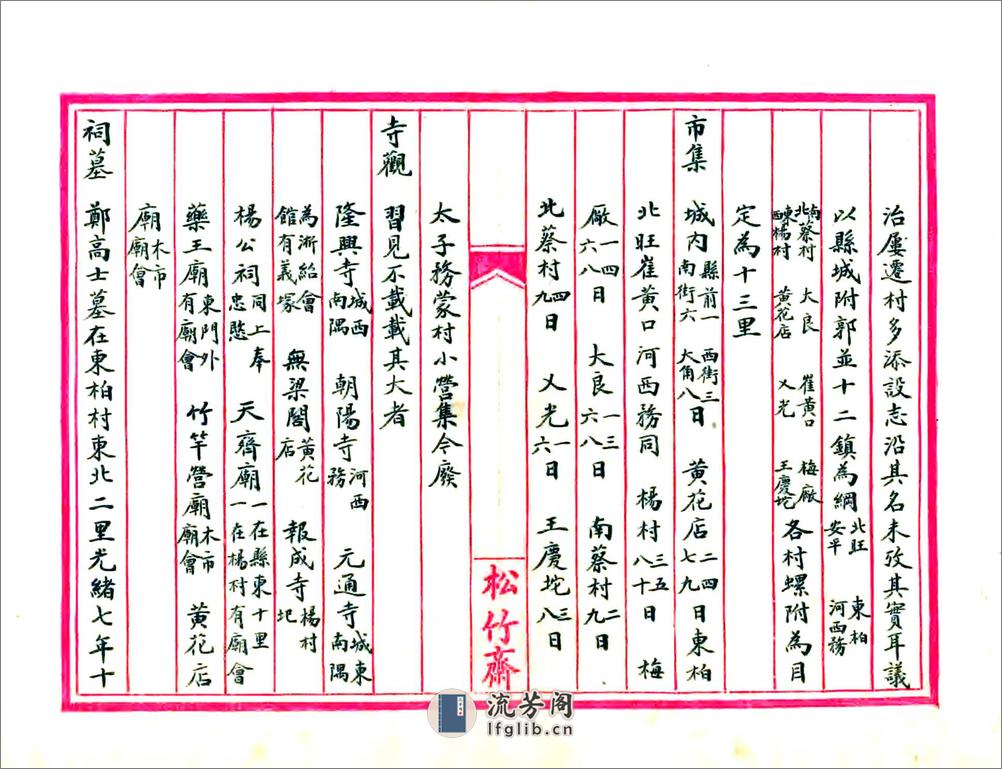 治屢遷村多添設志沿其名未攷其實耳議
以縣城附郭並十二鎮為綱北旺安平東柏河西務
南北蔡村東西楊村大良黃花店崔黃口乂光梅廠王慶坨各村螺附為目
定為十三里
市集 城内縣前一南街六西街三大角八日 黃花店二四七九日東柏
北旺崔黃口河西務同 楊村三五八十日 梅
廠一四六八日 大良一三六八日 南蔡村二九日
北蔡村四九日 乂光一六日 王慶坨三八日
松竹齋
太子務蒙村小營集今廢
寺觀 習見不載載其大者
隆興寺城西南隅 朝陽寺河西務 元通寺城東南隅
為浙紹會館有義塚 無梁閣黃花店 報成寺楊村圮
楊公祠同上奉忠愍 天齊廟一在縣東十里一在楊村有廟會
藥王廟東門外有廟會 竹竿營廟木市廟會 黃花店
廟木市廟會
祠墓 鄭高士墓在東柏村東北二里光緒七年十
流芳阁
lfglib.cn